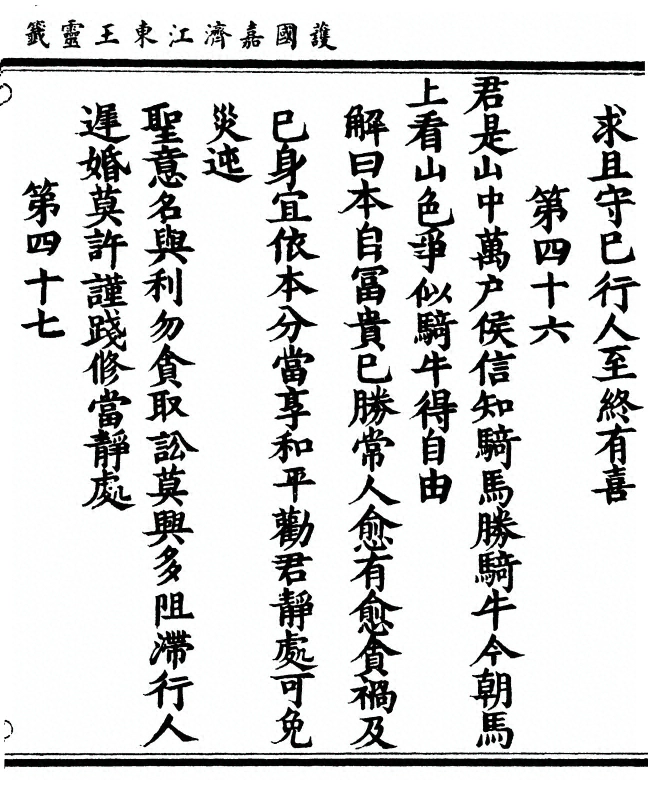 護國嘉濟江東王靈籤
求且守巳行人至終有喜
第四十六
君是山中萬户侯信知騎馬勝騎牛今朝馬
上看山色爭似騎牛得自由
解曰本自冨貴巳勝常人愈有愈貪禍及
巳身宜依本分當享和平勸君靜處可免
災迍
聖意名與利勿貪取訟莫興多阻滯行人
遲婚莫許謹踐修當靜處
第四十七